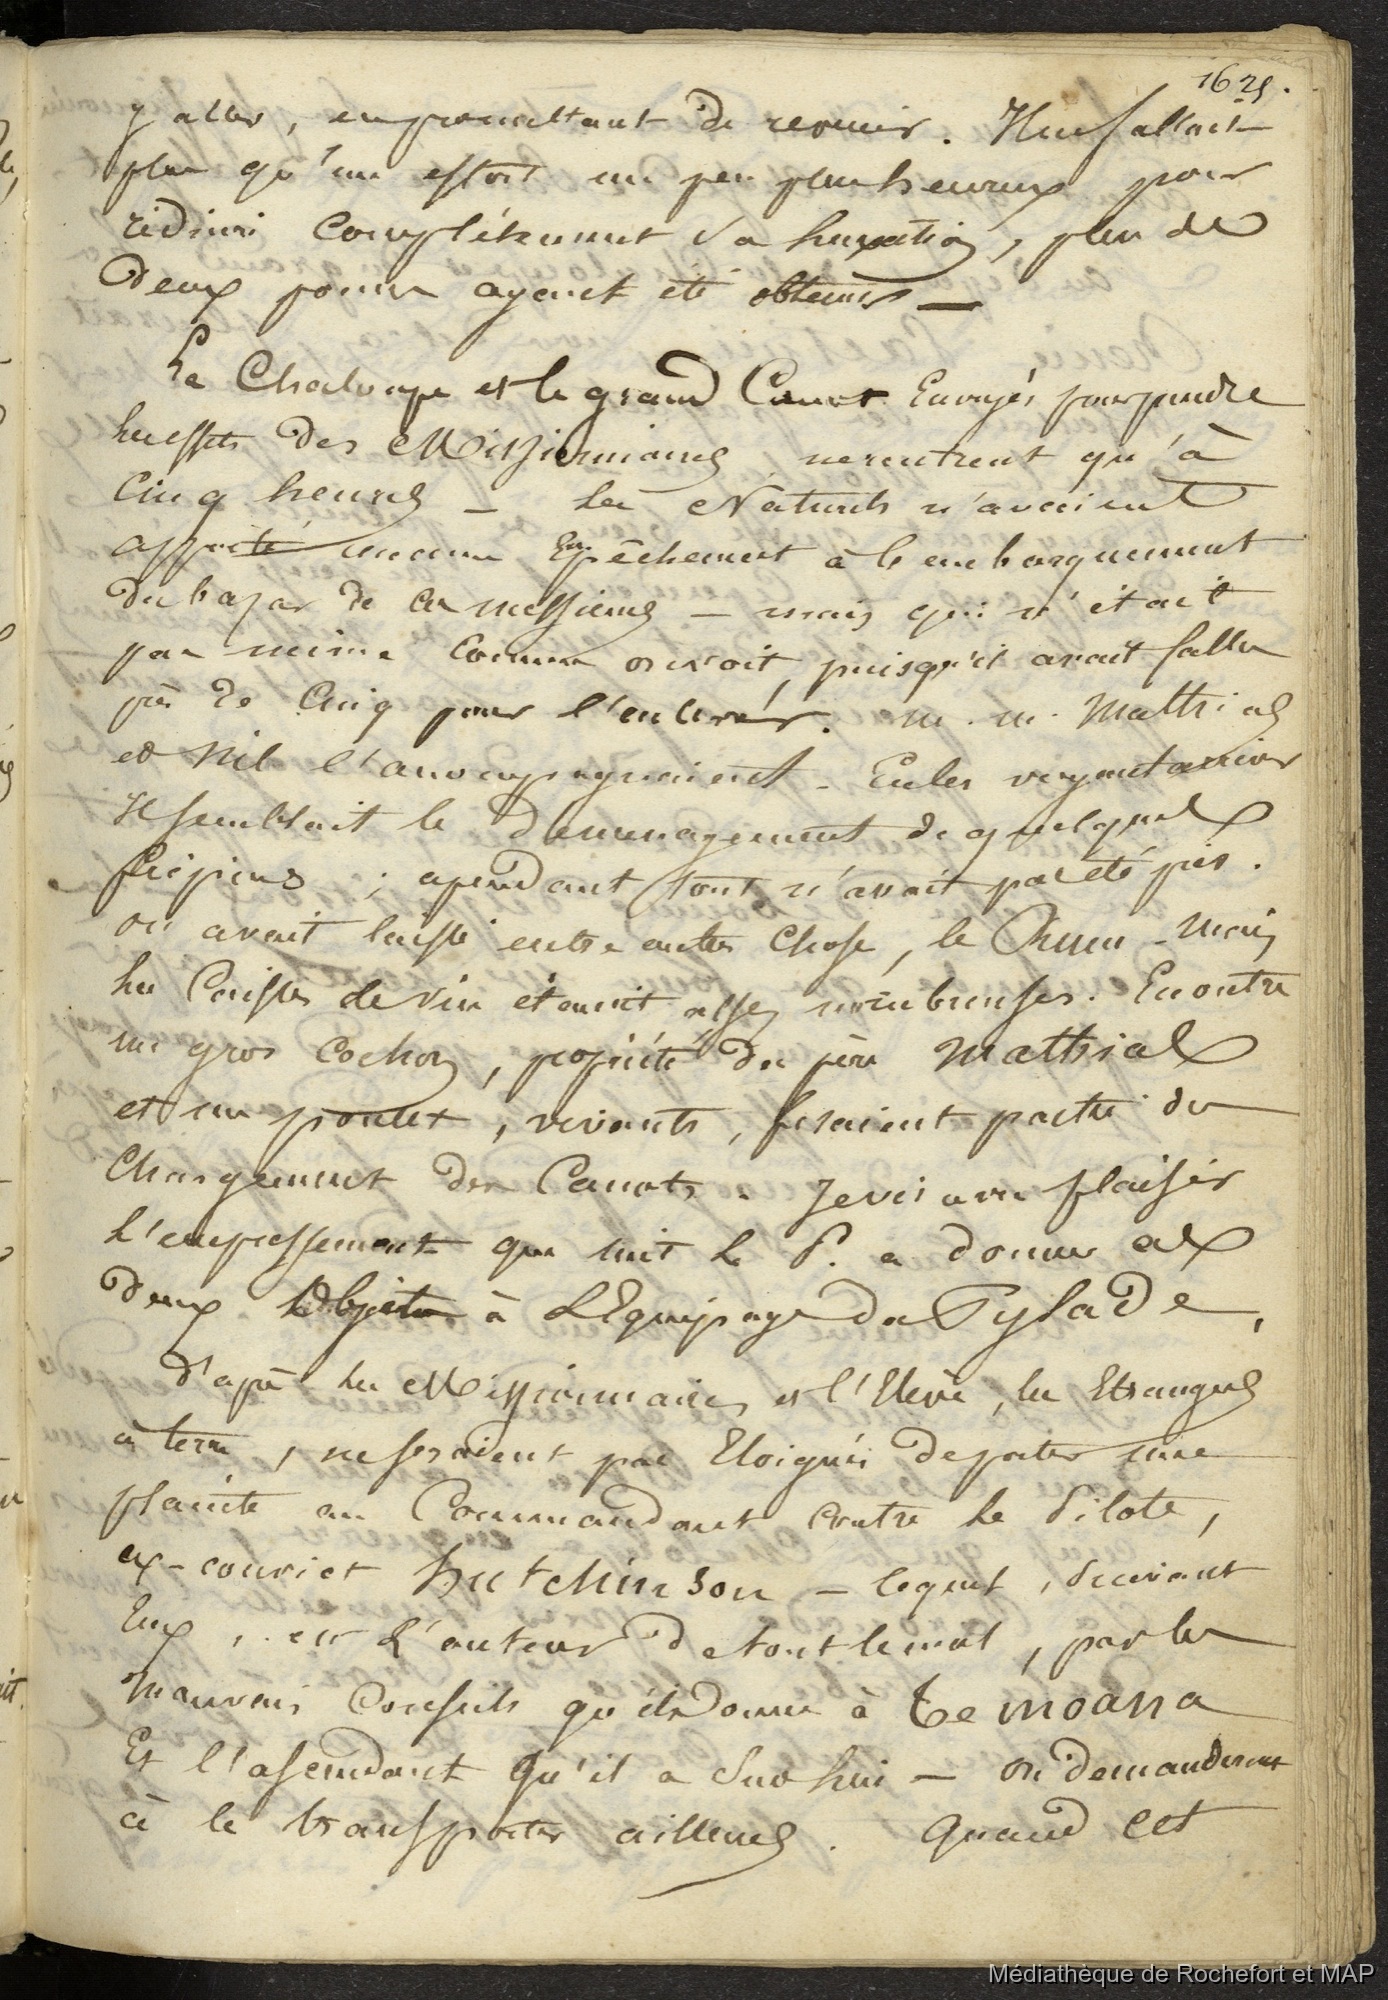 1625.
y aller, en promettant de revenir. Il ne fallait
plus qu'un effort un peu plus heureux pour
réduire complétement sa luxation, plus de
deux pouces ayant été obtenus —
La Chaloupe et le grand Canot Envoyés pour prendre
les effets des Missionnaires ne rentrent qu'à
Cinq heures — les Naturels n'avaient
apporté aucun Empêchement à l'embarquement
du bazar de ces messieurs — mais qui n'était
pas mince comme on voit, puisqu'il avait fallu
près de Cinq pour l'enlever. M. M. Mathias
et Nil l'accompagnaient — En les voyant arriver
Il semblait le déménagement de quelques
fripiers ; cependant tout n'avait pas été pris.
on avait laissé entre autres Chose, le Rhum — Mais
les Caisses de vin étaient assez nombreuses. En outre
un gros Cochon, propriété du père Mathias
et un poulet, vivants, faisaient partie du
Chargement des Canots. Je vis avec plaisir
l'empressement que mit le P. a donner ces
deux Objets à l'Equipage du Pylade,
d'après les Missionnaires et l'Elève, les Etrangers
à terre, ne seraient pas Eloignés de porter une
plainte au Commandant contre le Pilote,
ex-convict Hutchinson — lequel, suivant
Eux, est l'auteur de tout le mal, par les
Mauvais Conseils qu'il donne à Te moana
Et l'asendant Qu'il a sur lui — on demanderait
à le transporter ailleurs. Quand cet
Médiathèque de Rochefort et MAP